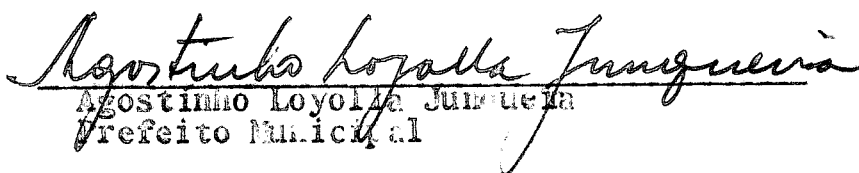 Agostinho Loyolla Junqueira
Agostinho Loyolla Junqueia
Prefeito Municipal